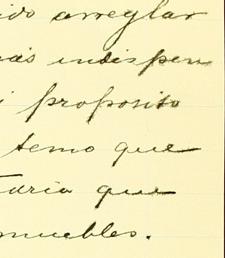 ido arreglar
más indispen
i proposito
temo que
taria que
muebles.